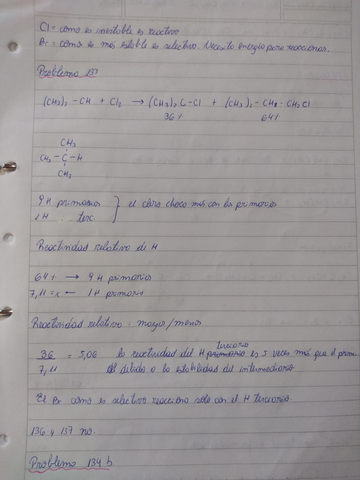 Cl = como es inestable es reactivo
Br = como es más estable es selectivo. Necesita energía para reaccionar.
Problema 13
(CH3)3 - CH + Cl2 → (CH3)3 C - Cl + (CH3)2 - CH - CH2Cl
36% 64%
CH3
CH3 - C - H
CH3
9 H primarios } el cloro choca más con los primarios
1 H terc.
Reactividad relativa de H
64% → 9 H primarios
7,11 = x ← 1 H primario
Reactividad relativa: mayor/menor
36 = 5,06 la reactividad del H primario terciario es 5 veces más que el prim.
7,11 debido a la estabilidad del intermediario
El Br como es selectivo reacciona solo con el H terciario.
136 y 137 no.
Problema 134 b